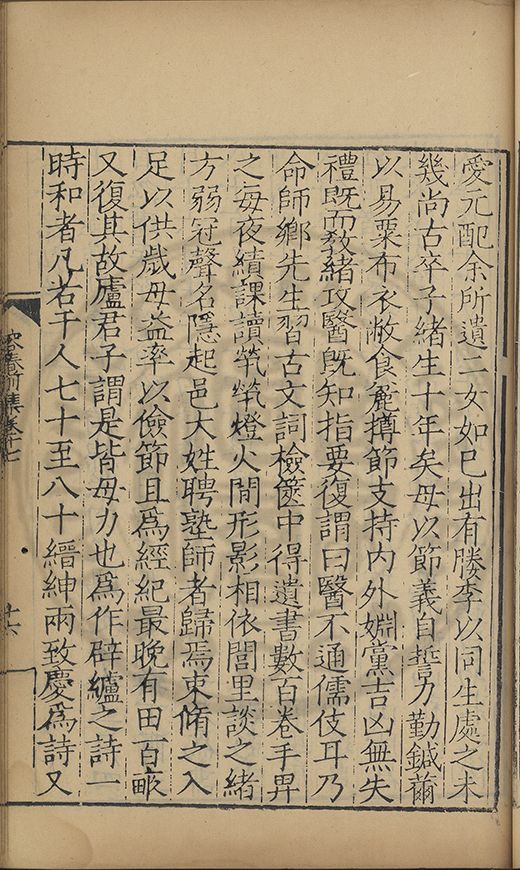 愛元配余所遺二女如巳出有勝李以同生處之未
幾尚古卒子緒生十年矣母以節義自誓力勤鍼黹
以易粟布衣敝食麄撙節支持内外姻黨吉凶無失
禮既而敎緒攻醫既知指要復謂曰醫不通儒伎耳乃
命師鄉先生習古文詞檢篋中得遺書數百卷手畀
之每夜績課讀煢煢燈火間形影相依閭里談之緒
方弱冠聲名隱起邑大姓聘塾師者歸焉束脩之入
足以供歳母益率以儉節且爲經紀最晚有田百畝
又復其故廬君子謂是皆母力也爲作辟纑之詩一
時和者凡若干人七十至八十縉紳兩致慶爲詩又
集卷十七